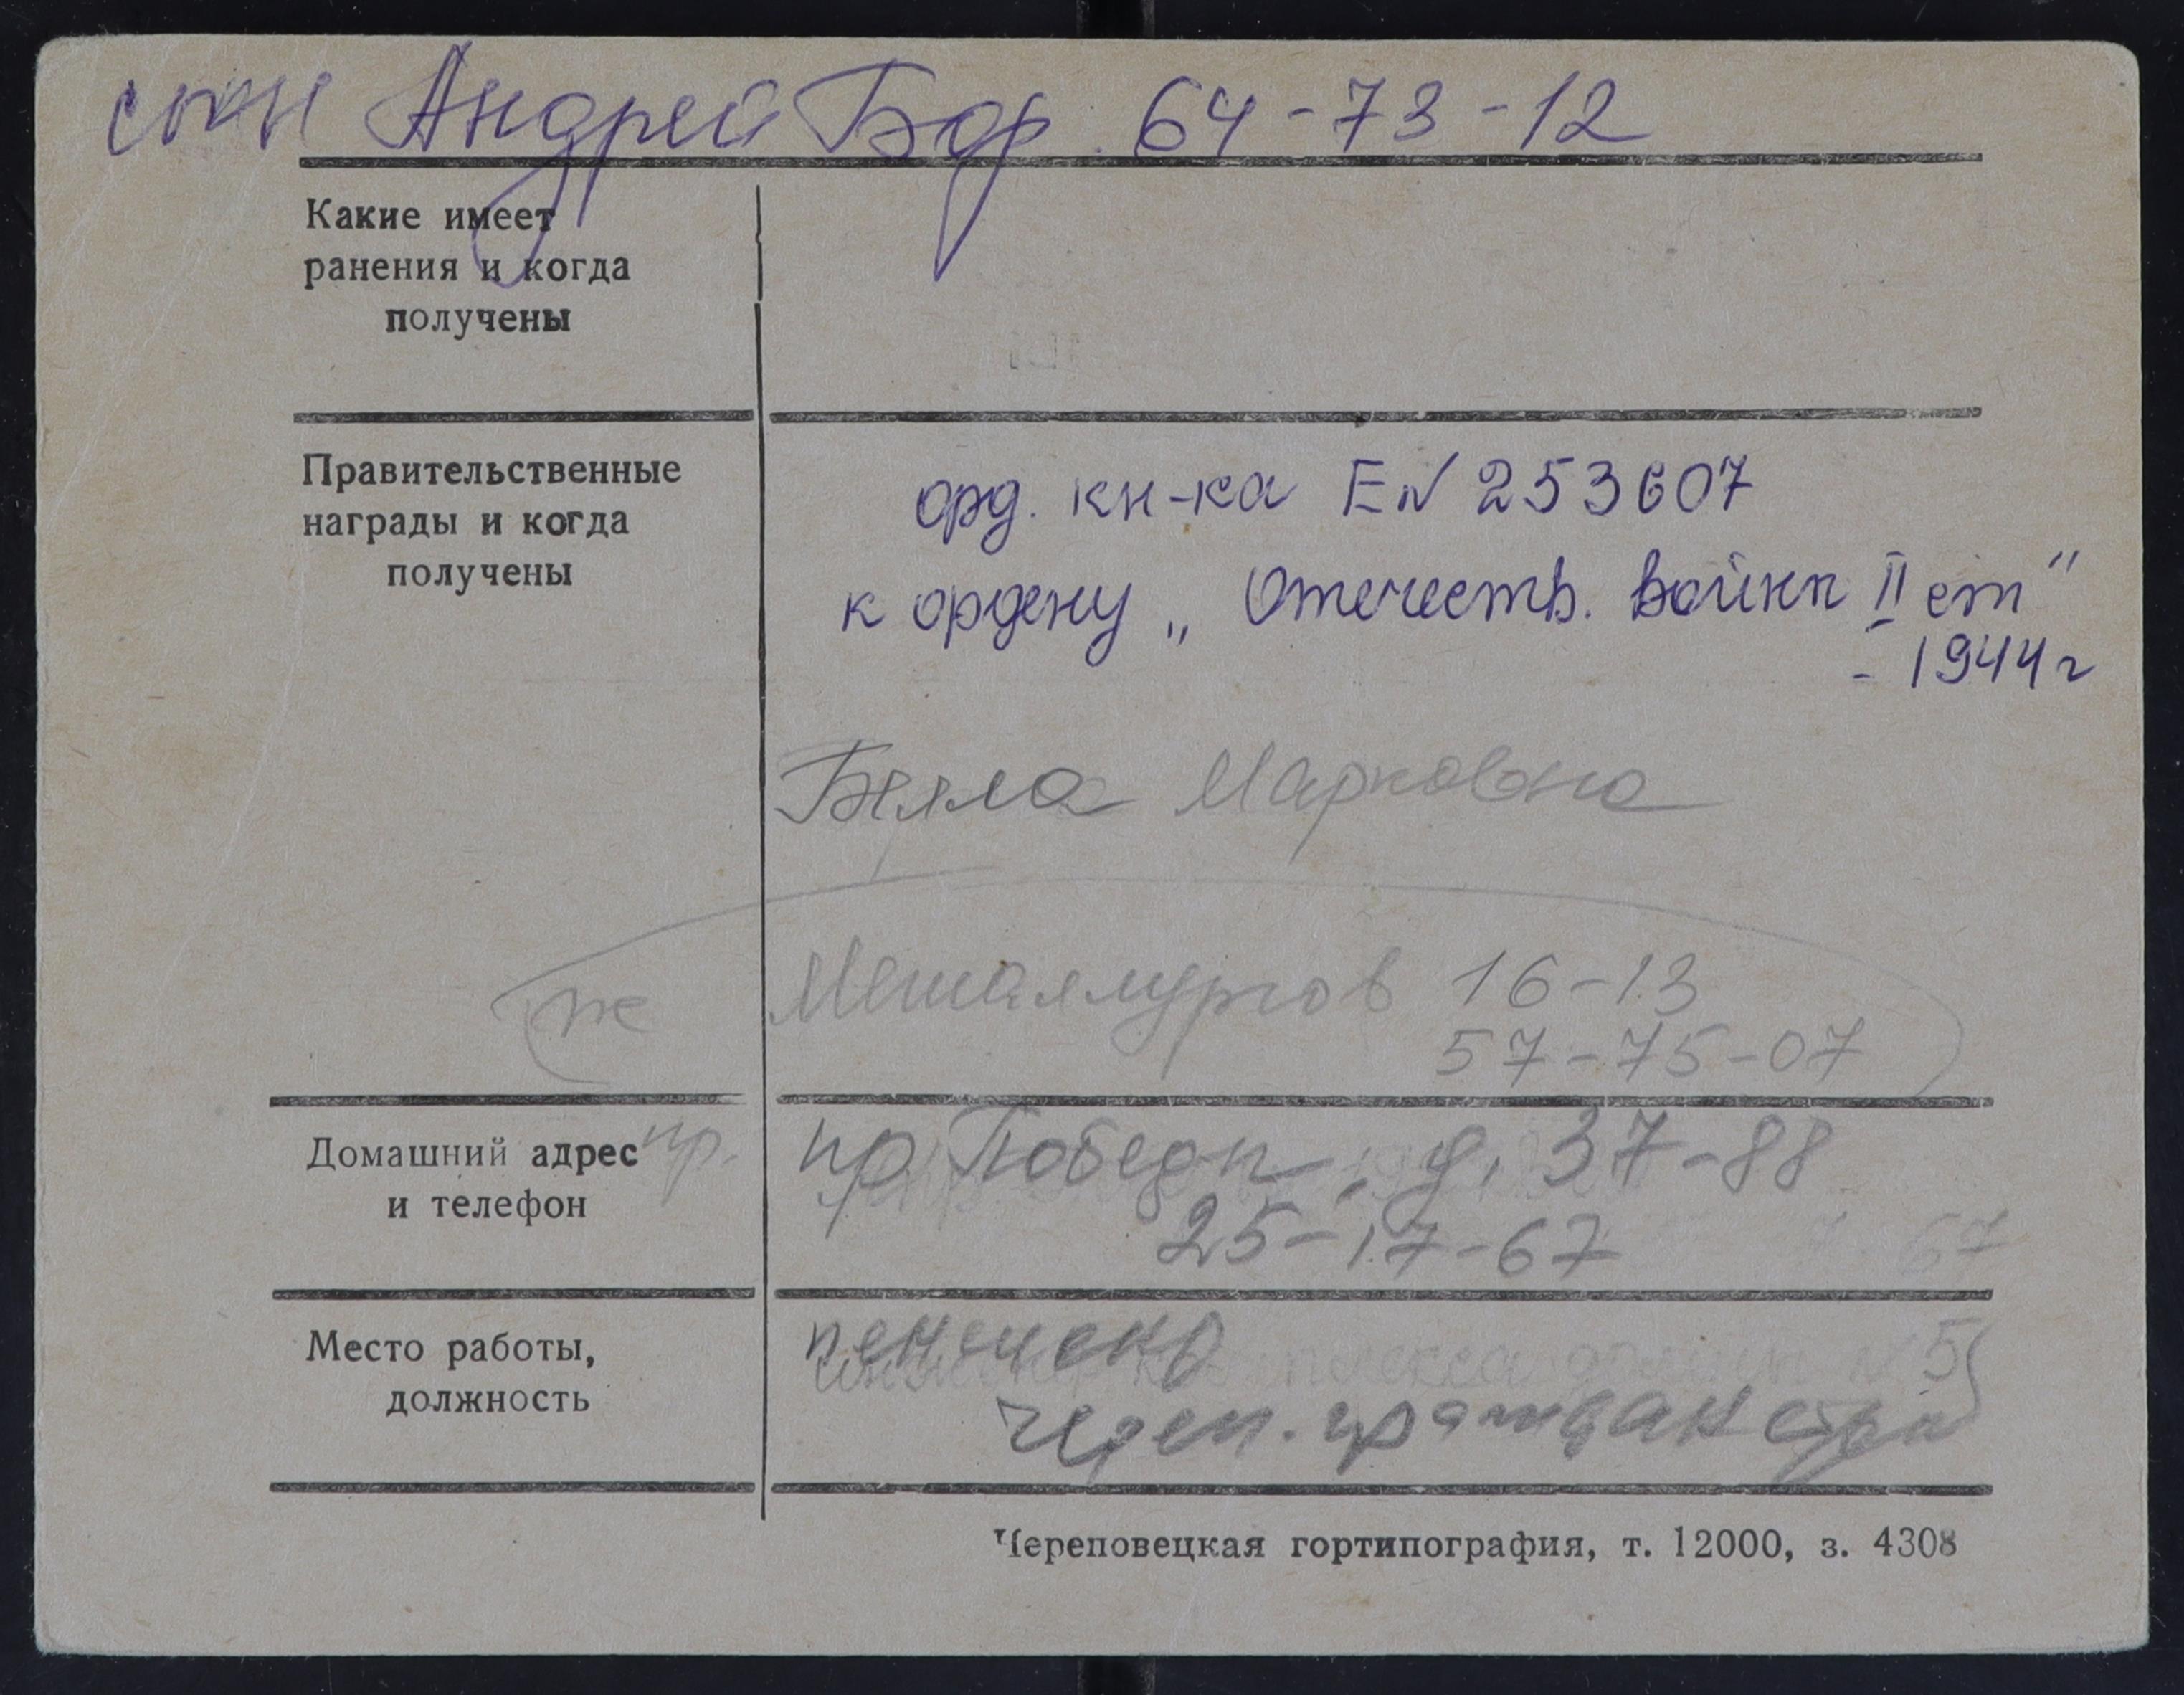 сын Андрей Бор. 64-73-12
Какие имеет
ранения и когда
получены
Правительственные
награды и когда
получены
орд. кн-ка Е№ 253607
к ордену „Отечеств. войны II ст"
- 1944 г
Бэлла Марковна
Металлургов 16-13
57-75-07
Домашний адрес
и телефон
пр.
пр. Победы, д. 37-88
25-17-67
67
Место работы,
должность
пенсионер
№ 5
Череп. граждан строй
Череповецкая гортипография, т. 12000, з. 4308